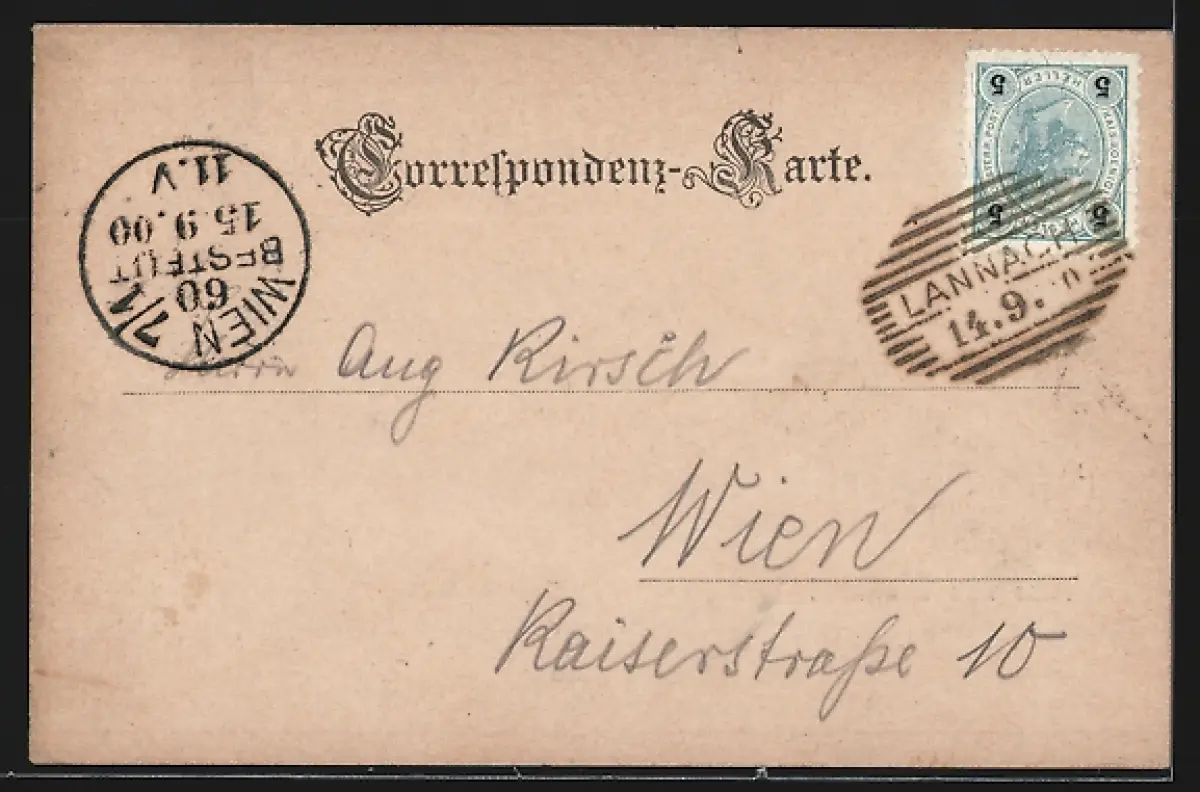 Correspondenz-Karte.
5 HELLER 5
5 5
LANNACH
14.9.
WIEN 7/1
60
BESTELLT
15.9.00
11.V
Herrn Aug Kirsch
Wien
Kaiserstraße 10